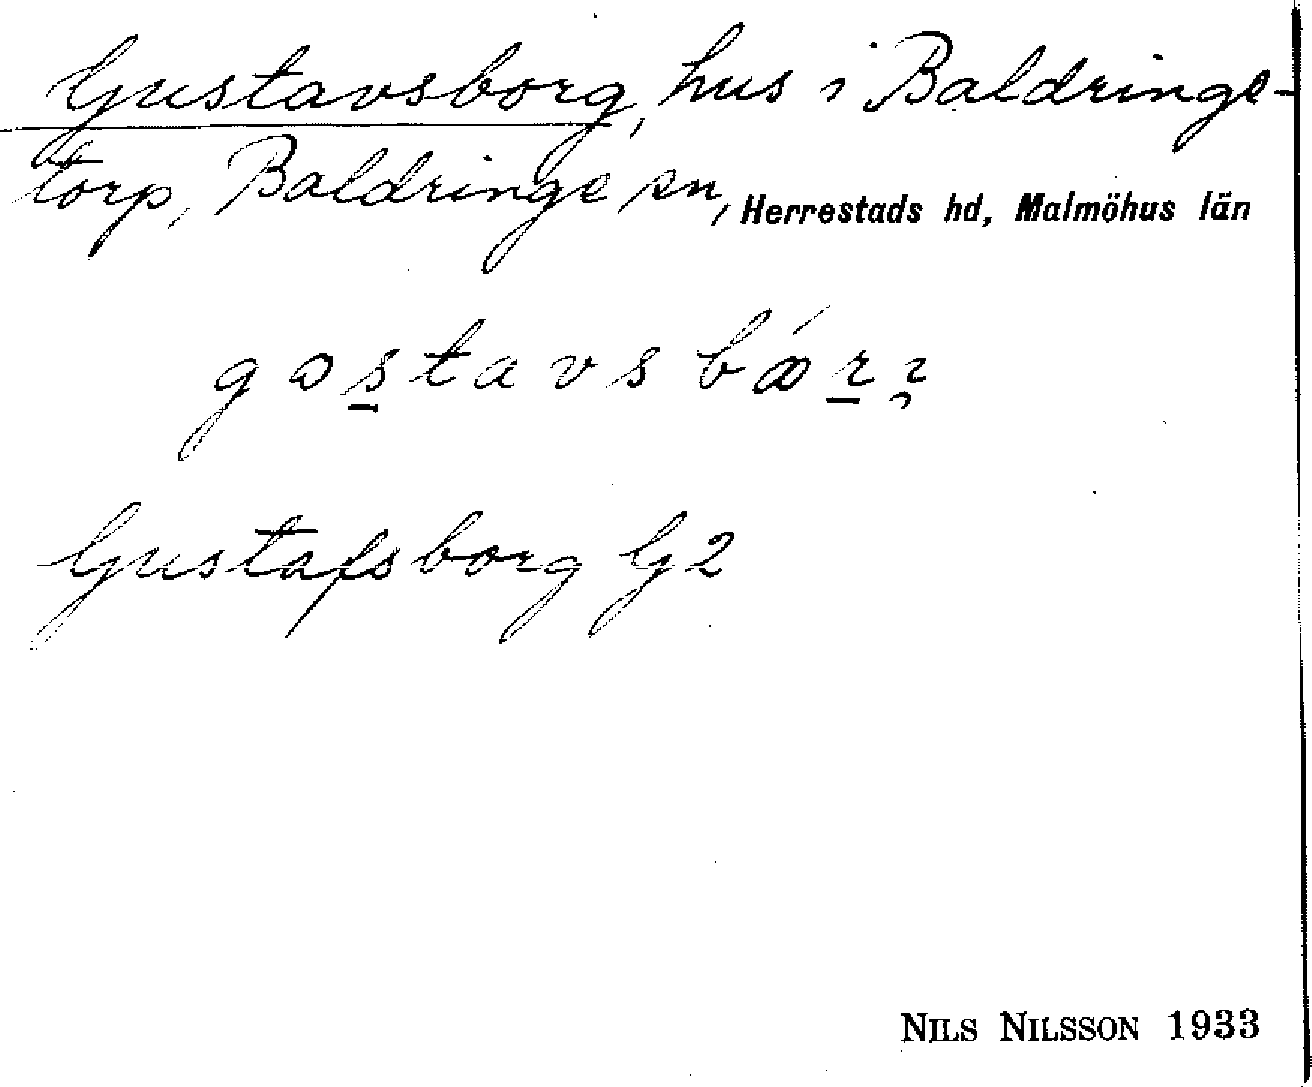 Gustavsborg, hus i Baldringe-
torp, Baldringe sn, Herrestads hd, Malmöhus län
Gustafsborg G2
NILS NILSSON 1933